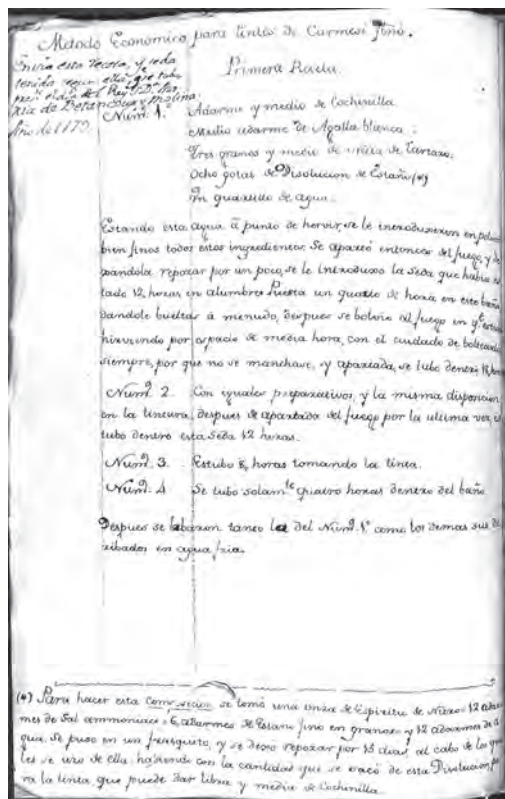 Metodo Economico para tintes de Carmesí fino.
Envia esta Receta, y seda
teñida segun ella que tubo
el Rey D.
de Betancourt y Molina.
Año de 1779
Primera Receta.
Num.º 1.º Adarme y medio de Cochinilla
Medio adarme de Agalla blanca
Tres granos y medio de de Tartaro.
Ocho gotas de Disolucion de Estaño (*)
Un quartillo de agua.
Estando esta agua á punto de hervir, se le introduxeron en
bien finos todos estos ingredientes. Se apartó entonces del fuego, y de
xandola reposar por un poco, se le introduxo la Seda que habia es
tado 12, horas en alumbre: Puesta un quarto de hora en este baño
dandole bueltas á menudo, despues se bolvio al fuego en q.e
hirviendo por espacio de media hora, con el cuidado de
siempre, por que no se manchase, y apartada, se tubo dentro
Num.º 2. Con yguales preparativos, y la misma disposicion
en la tintura, despues de apartada del fuego por la ultima vez,
tubo dentro esta Seda 12 horas.
Num.º 3. Estubo 8, horas tomando la tinta.
Num.º 4 Se tubo solam.te quatro horas dentro del baño.
Despues se labaron tanto la del Num.º 1.º como los demas sus de
ribados en agua fria.
(*) Para hacer esta composicion se tomó una onza de Espiritu de Nitro = 12 adar
mes de Sal ammoniaco = 6, adarmes de Estaño fino en granos = y 12 adarmes de a
gua. Se puso en un frasquito, y se dexo reposar por 15 dias, al cabo de los qua
les se uso de ella, haciendo con la cantidad que se sacó de esta Disolucion, pa
ra la tinta, que puede dar libra y media de Cochinilla.